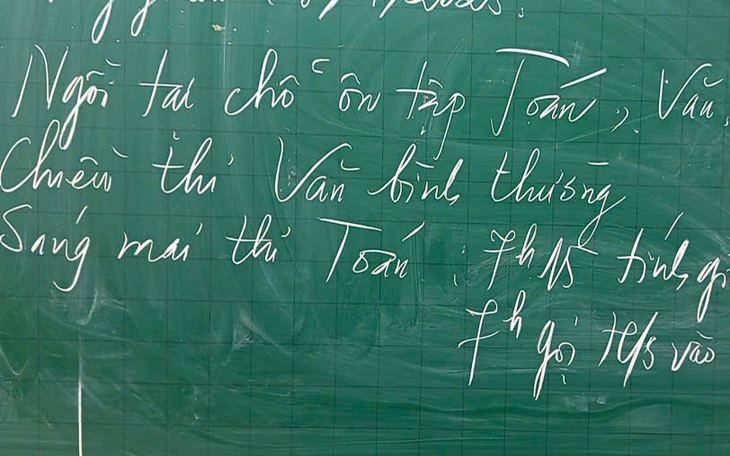 Ngồi tại chỗ ôn tập Toán, Văn
Chiều thi Văn bình thường
Sáng mai thi Toán: 7h15 tính gi
7h gọi H/s vào